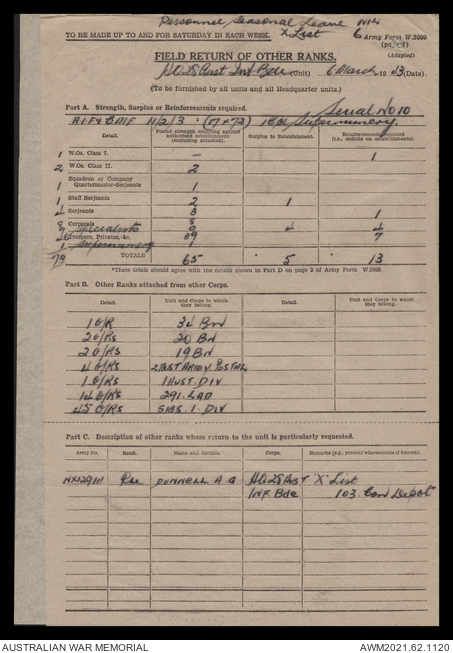 Personnel Seasonal Leave NIL
X List 6
TO BE MADE UP TO AND FOR SATURDAY IN EACH WEEK. Army Form W.3009
(Adapted)
FIELD RETURN OF OTHER RANKS.
HQ 28 Aust Inf Bde (Unit) 6 March 1943 (Date).
(To be furnished by all units and all Headquarter units.)
Serial No 10
Part A. Strength, Surplus or Reinforcements required.
11/2/3 (17+72) 1 Supernumery.
Detail. Posted strength counting against authorised establishment (excluding attached). Surplus to Establishment. Reinforcements required (i.e., deficits on establishment).
1 W.Os. Class I. — 1
2 W.Os. Class II. 2
1 Squadron or Company Quartermaster-Serjeants 1
1 Staff Serjeants 2 1
4 Serjeants 3 1
Corporals
Specialists 4 4
Troopers, Privates, &c. 39 7
1 Supernumery 1
73 TOTALS 65 5 13
*These totals should agree with the details shown in Part D on page 2 of Army Form W.3009.
Part B. Other Ranks attached from other Corps.
Detail. Unit and Corps to which they belong. Detail. Unit and Corps to which they belong.
1 O/R 34 Bn
2 O/Rs 20 Bn
2 O/Rs 19 Bn
4 O/Rs 2 Aust Army Postal
1 O/Rs 1 Aust. Div
14 O/Rs 291. LAD
45 O/Rs SIGS. 1. DIV
Part C. Description of other ranks whose return to the unit is particularly requested.
Army No. Rank. Name and Initials. Corps. Remarks (e.g., present whereabouts if known).
NX129111 Pte DUNNELL A G HQ 28 Aust "X" List
Inf Bde 103. Con Depot
AUSTRALIAN WAR MEMORIAL AWM2021.62.1120